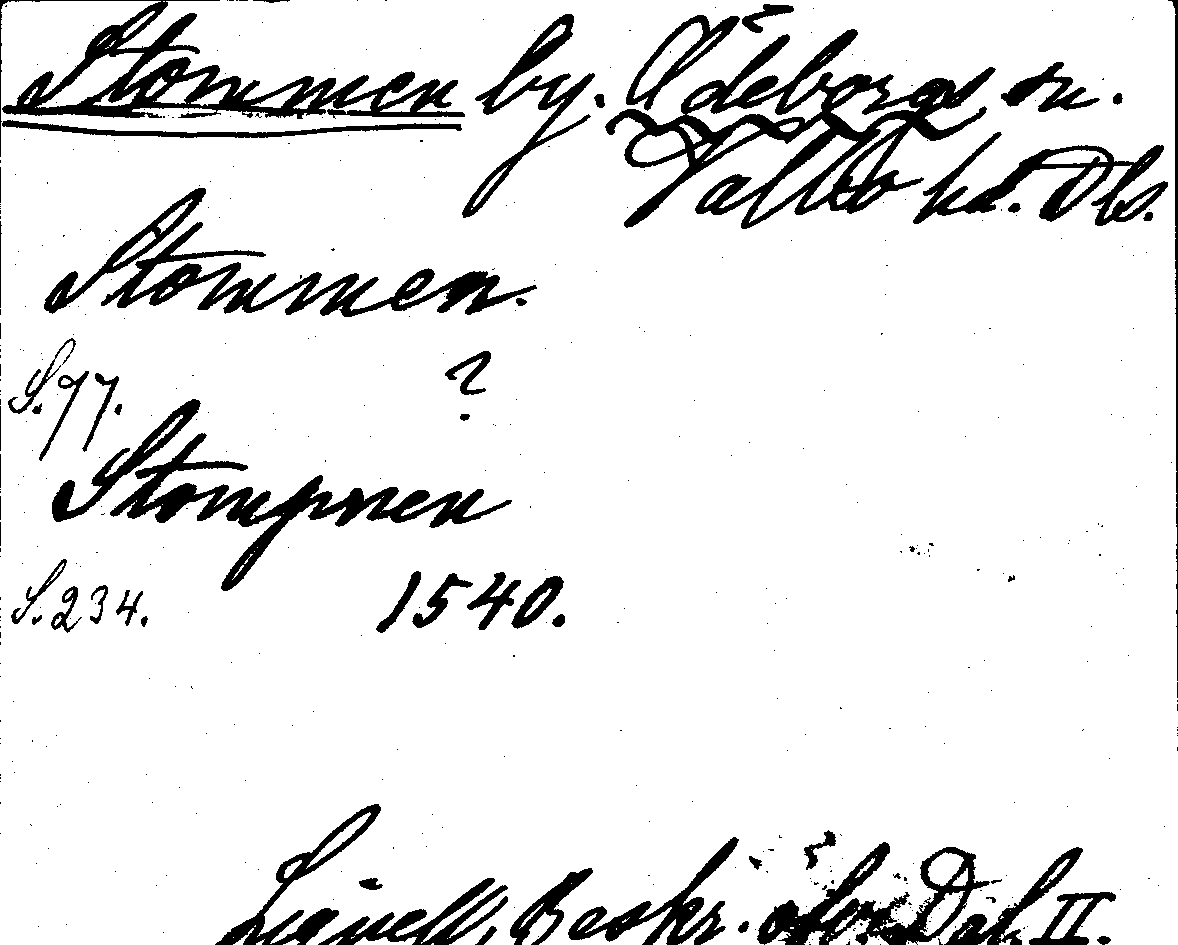 Stommen by. Ödeborgs sn.
Valbo hd. Dls.
Stommen.
S. 77. ?
Stompnen
S. 234. 1540.
Lignell, Beskr. öfver Dal. II.